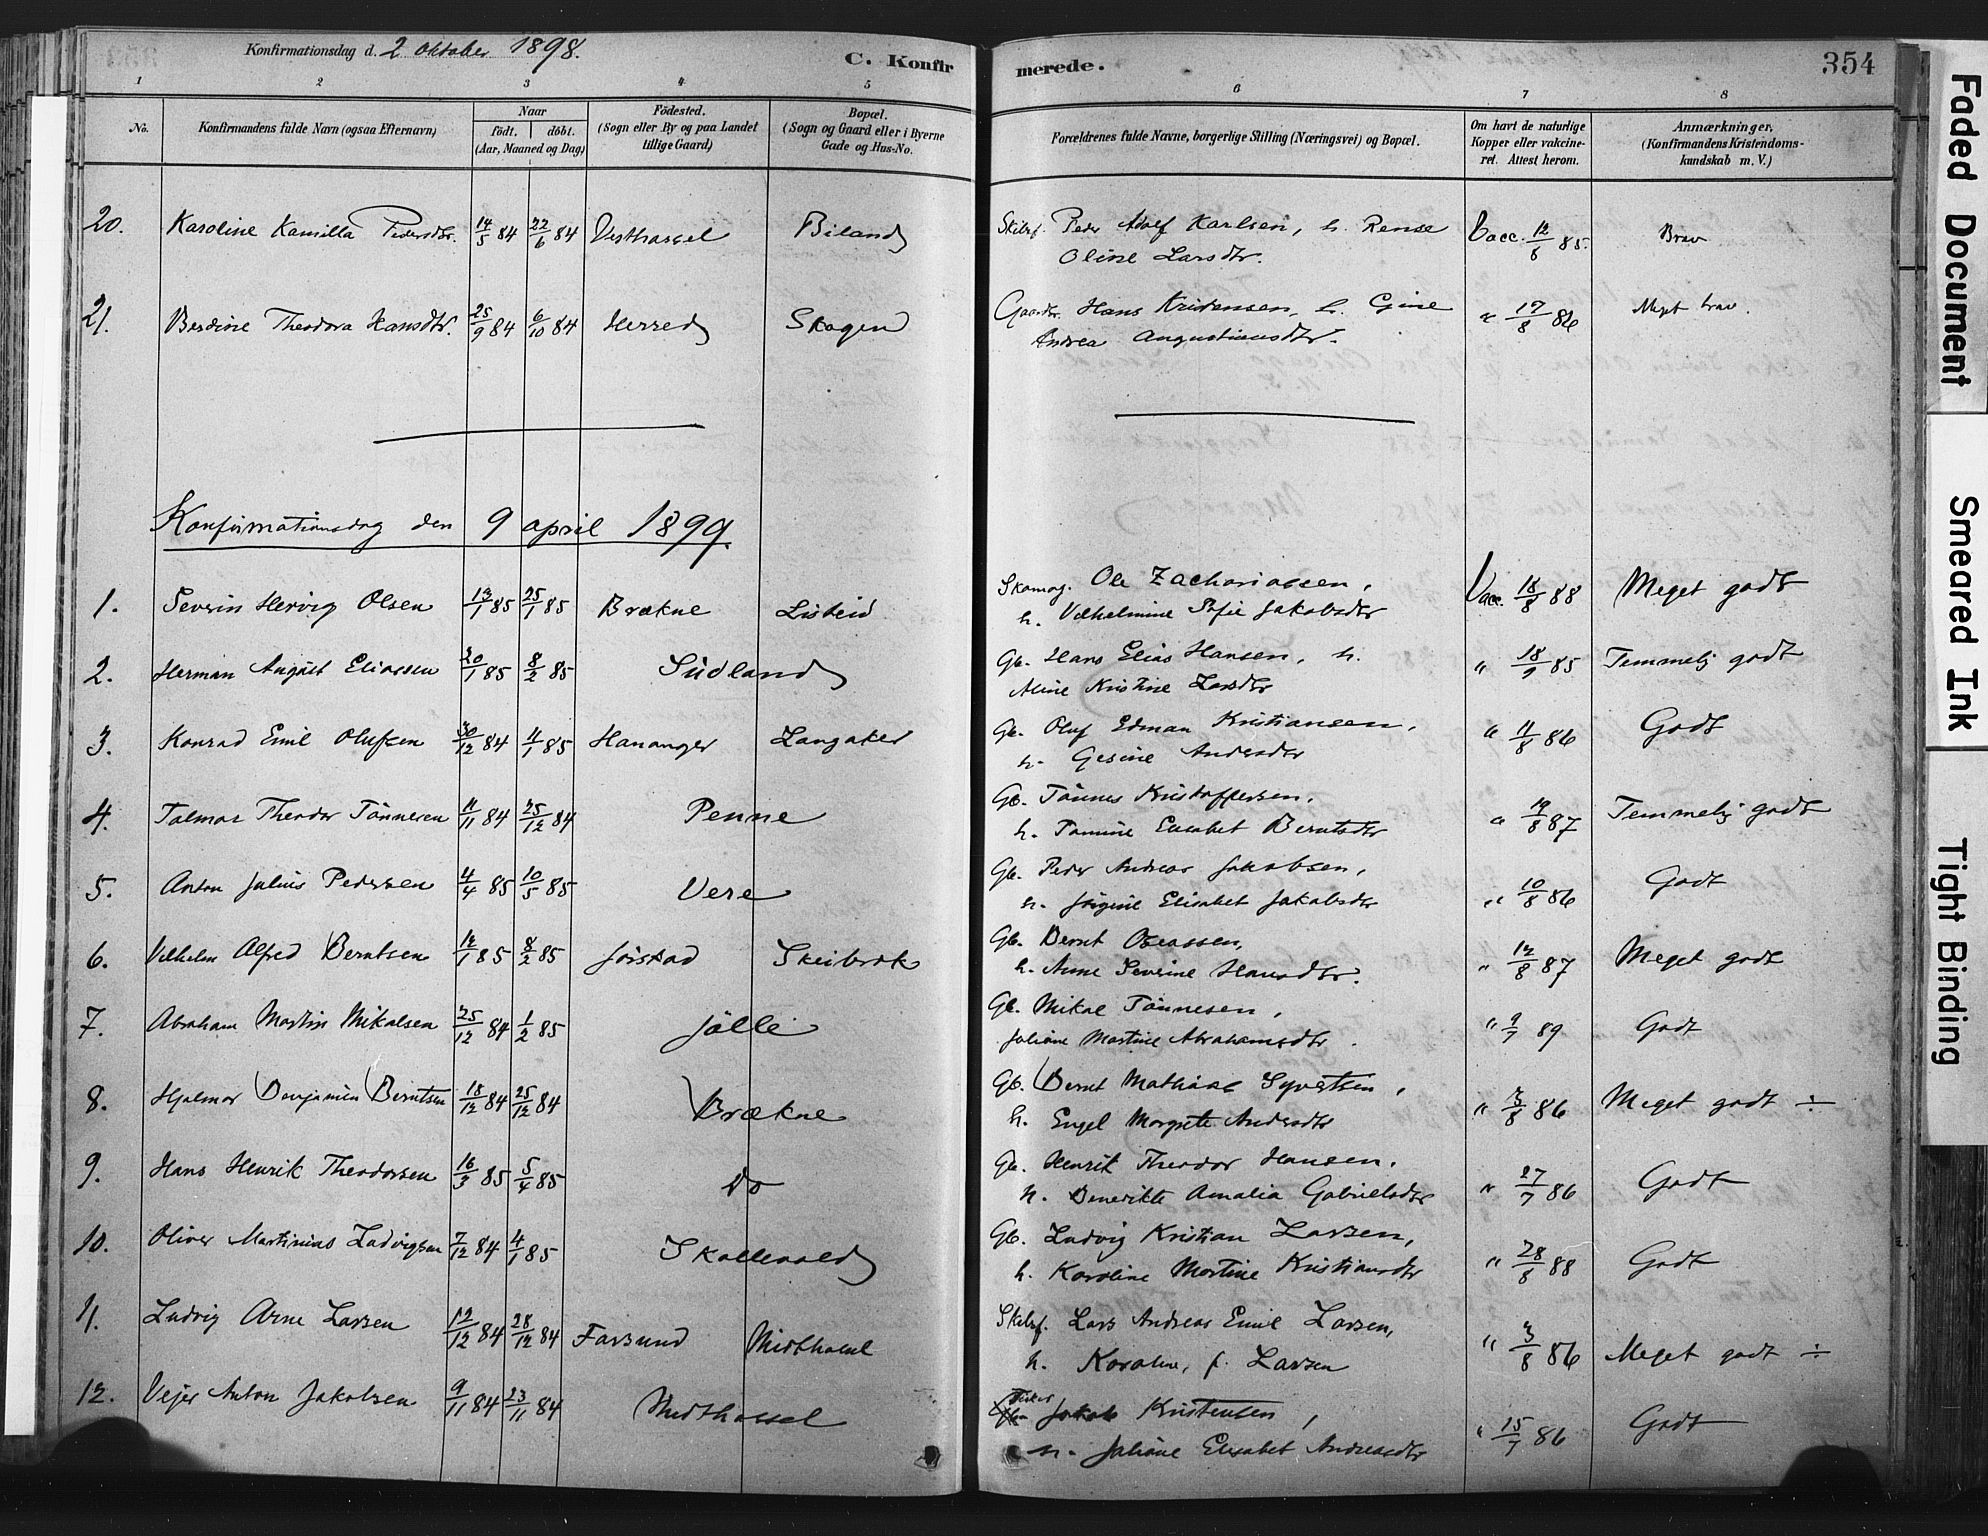 Konfirmationsdag d. 2 oktober 1898.
C. Konfirmerede.
354
1 2 3 4 5 6 7 8
No.
Konfirmandens fulde Navn (ogsaa Efternavn)
Naar
födt. döbt.
(Aar, Maaned og Dag)
Födested.
(Sogn eller By og paa Landet
tillige Gaard)
Bopæl.
(Sogn og Gaard eller i Byerne
Gade og Hus-No.
Forældrenes fulde Navne, borgerlige Stilling (Næringsvei) og Bopæl.
Om havt de naturlige
Kopper eller vakcine-
ret. Attest herom.
Anmærkninger,
(Konfirmandens Kristendoms-
kundskab m. V.)
20. Karoline Kamilla Pedersdtr. 14/5 84 22/6 84 Vesthassel Biland Peder Adolf Karlsen, h. Rense Vacc. 12/6 85. Brav
Oline Larsdtr.
21. Berdine Theodora Hansdtr. 25/9 84 6/10 84 Herred Skagen Gaardbr. Hans Kristensen, h. Gine " 17/8 86 Meget brav.
Andrea Augustinusdtr.
Konfirmationsdag den 9 april 1899.
1. Severin Hervig Olsen 13/1 85 25/1 85 Brækne Listeid Skomag. Ole Zachariassen, Vacc. 18/8 88 Meget godt
h. Vilhelmine Sofie Jakobsdtr
2. Herman August Eliassen 20/1 85 8/2 85 Sudland Gb. Hans Elias Hansen, h. " 18/9 85 Temmelig godt
Aline Kristine Larsdtr
3. Konrad Emil Olufsen 30/12 84 11/1 85 Hananger Langaker Gb. Oluf Edman Kristiansen, " 11/8 86 Godt
h. Gesine Andersdtr
4. Talmar Theodor Tönnesen 11/11 84 25/12 84 Penne Gb. Tönnes Kristoffersen, " 19/8 87 Temmelig godt
h. Tomine Elisabet Berntsdtr
5. Anton Julius Pedersen 4/4 85 10/5 85 Vere Gb. Peder Andreas Jakobsen, " 10/8 86 Godt
h. Jörgine Elisabet Jakobsdtr
6. Vilhelm Alfred Berntsen 12/1 85 8/2 85 Jörstad Skeibrok Gb. Bernt Oseassen, " 12/8 87 Meget godt
h. Anne Severine Hansdtr.
7. Abraham Martin Mikalsen 25/12 84 1/2 85 Jölle Gb. Mikal Tönnesen, " 9/7 89 Godt
Juliane Martine Abrahamsdtr.
8. Hjalmar Benjamin Berntsen 18/12 84 25/12 84 Brækne Gb. Bernt Mathias Syvertsen, " 3/8 86 Meget godt ÷
h. Engel Margrete Andersdtr
9. Hans Henrik Theodorsen 16/3 85 5/4 85 Do Gb. Henrik Theodor Hansen, " 27/7 86 Godt
h. Benedikte Amalia Gabrielsdtr
10. Oliver Martinius Ludvigsen 7/12 84 4/1 85 Skollevold Gb. Ludvig Kristian Larsen, " 28/8 88 Godt
h. Karoline Martine Kristiansdtr
11. Ludvig Arne Larsen 12/12 84 28/12 84 Farsund Midthassel Lars Andreas Emil Larsen, " 3/8 86 Meget godt ÷
h. Karoline, f. Larsen
12. Vejer Anton Jakobsen 9/11 84 23/11 84 Midthassel Fisker Jakob Kristensen, " 15/7 86 Godt
h. Juliane Elisabet Andreasdtr
Faded Document
Smeared Ink
Tight Binding